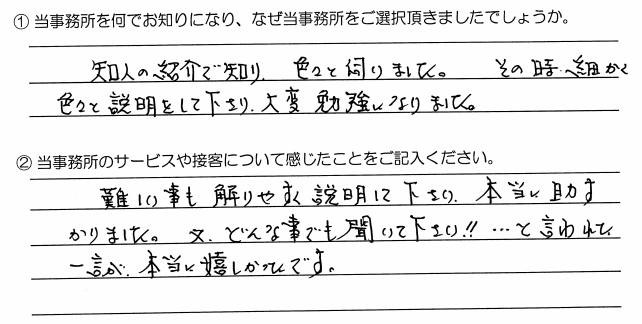 ① 当事務所を何でお知りになり、なぜ当事務所をご選択頂きましたでしょうか。
知人の紹介で知り、色々と伺りました。 その時、細かく
色々と説明をして下さり、大変勉強になりました。
② 当事務所のサービスや接客について感じたことをご記入ください。
難しい事も解りやすく説明して下さり、本当に助す
かりました。又、どんな事でも聞いて下さい!! …と言われた
一言が、本当に嬉しかったです。